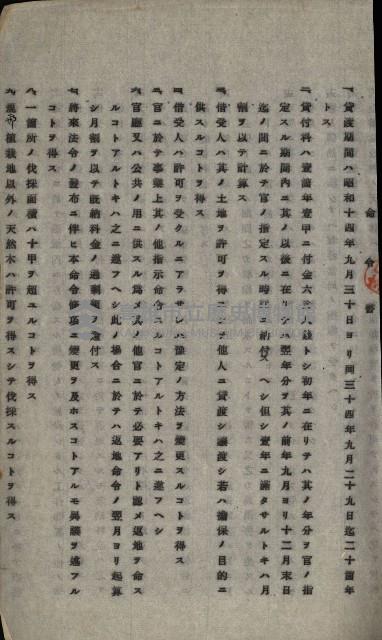 命令書
一、貸渡期間ハ昭和十四年九月三十日ヨリ同三十四年九月二十九日迄二十箇年
トス
二、貸付料ハ壹箇年壹甲ニ付金六 八錢トシ初年ニ在リテハ其ノ年分ヲ官ノ指
定スル期間内ニ其ノ以後ニ在リテハ翌年分ヲ其ノ前年九月ヨリ十二月末日
迄ノ間ニ於テ官ノ指定スル時 納付スヘシ但シ壹年ニ滿タサルトキハ月
割ヲ以テ計算ス
三、借受人ハ其ノ土地ヲ許可ヲ得 他人ニ貸渡シ讓渡シ若ハ擔保ノ目的ニ
供スルコトヲ得ス
四、借受人ハ許可ヲ受クルニアラサレハ豫定ノ方法ヲ變更スルコトヲ得ス
五、官ニ於テ事業上其ノ他指示命令スルコトアルトキハ之ニ遵フヘシ
六、官廳又ハ公共ノ用ニ供スル爲メ其ノ他官ニ於テ必要アリト認メ返地ヲ命ス
ルコトアルトキハ之ニ遵フヘシ此ノ場合ニ於テハ返地命令ノ翌月ヨリ起算
シ月割ヲ以テ既納料金ノ過剩 還付ス
七、將來法令ノ發布ニ伴ヒ本命令條項ニ變更ヲ及ホスコトアルモ異議ヲ述フル
コトヲ得ス
八、一箇所ノ伐採面積ハ十甲ヲ超ユルコトヲ得ス
九、 植栽地以外ノ天然木ハ許可ヲ得スシテ伐採スルコトヲ得ス